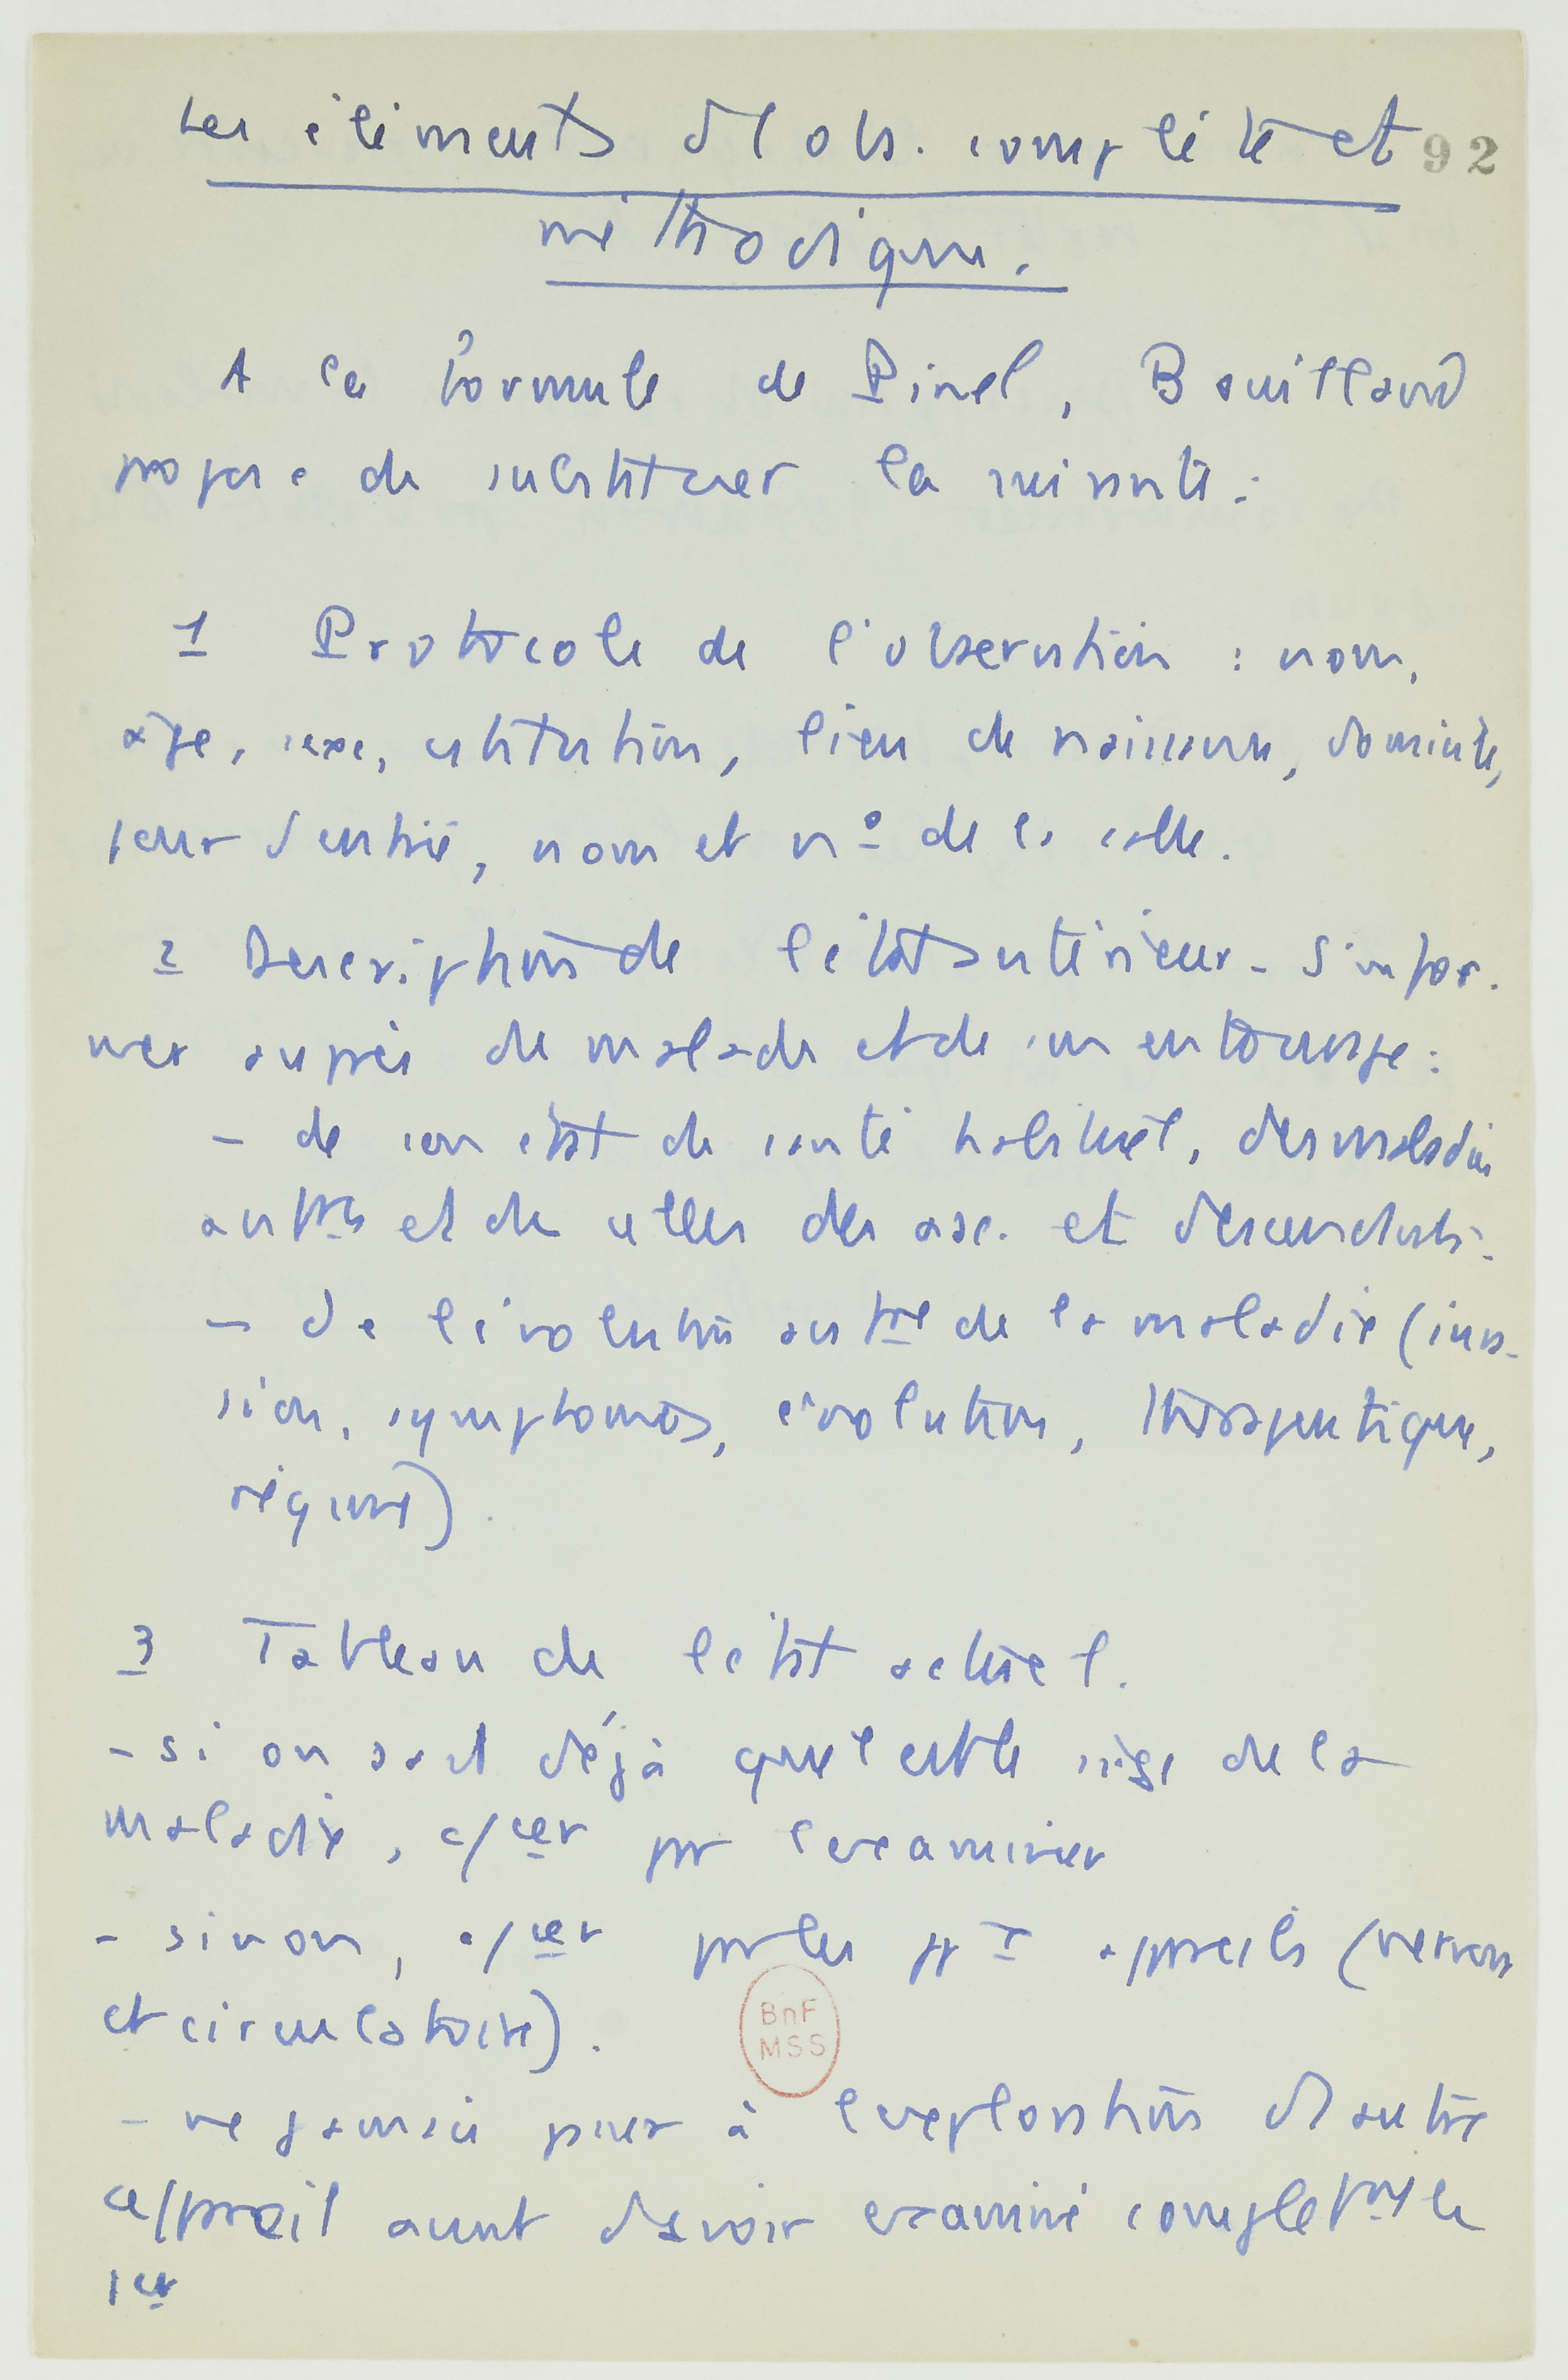 Les éléments d'1 obs. complète et 92
méthodique.
A la formule de Pinel, Bouillaud
propose de substituer la suivante :
1 Protocole de l'observation : nom,
âge, sexe, cstitution, lieu de naissance, domicile,
jour d'entrée, nom et nº de la salle.
2 Description de l'état antérieur - S'infor-
mer auprès du malade et de son entourage :
- de son état de santé habituel, des maladies
antres et de celles des asc. et descendants.
- de l'évolution antre de la maladie (inva-
sion, symptomes, évolution, thérapeutique,
régime).
3 Tableau de l'état actuel.
- si on sait déjà quel est le siège de la
maladie, c/cer pr l'examiner
- sinon, c/cer pr les ppx appareils (nerveux
et circulatoire).
- ne jamais passer à l'exploration d'1 autre
appareil avant d'avoir examiné complètmt le
1er
BnF
MSS